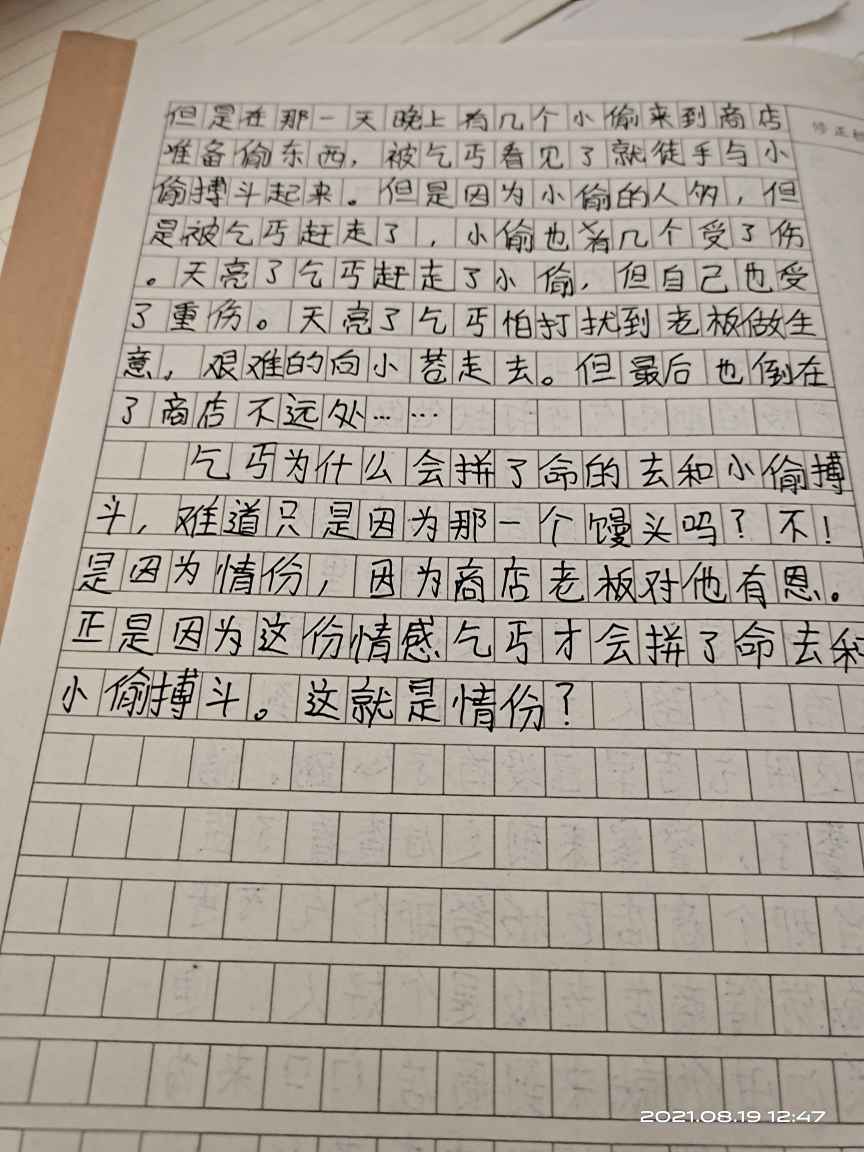 修正
但是在那一天晚上有几个小偷来到商店
准备偷东西，被乞丐看见了就徒手与小
偷搏斗起来。但是因为小偷的人多，但
是被乞丐赶走了，小偷也有几个受了伤
。天亮了乞丐赶走了小偷，但自己也受
了重伤。天亮了乞丐怕打扰到老板做生
意，艰难的向小巷走去。但最后也倒在
了商店不远处……
乞丐为什么会拼了命的去和小偷搏
斗，难道只是因为那一个馒头吗？不！
是因为情份，因为商店老板对他有恩。
正是因为这份情感乞丐才会拼了命去和
小偷搏斗。这就是情份？
2021.08.19 12:47